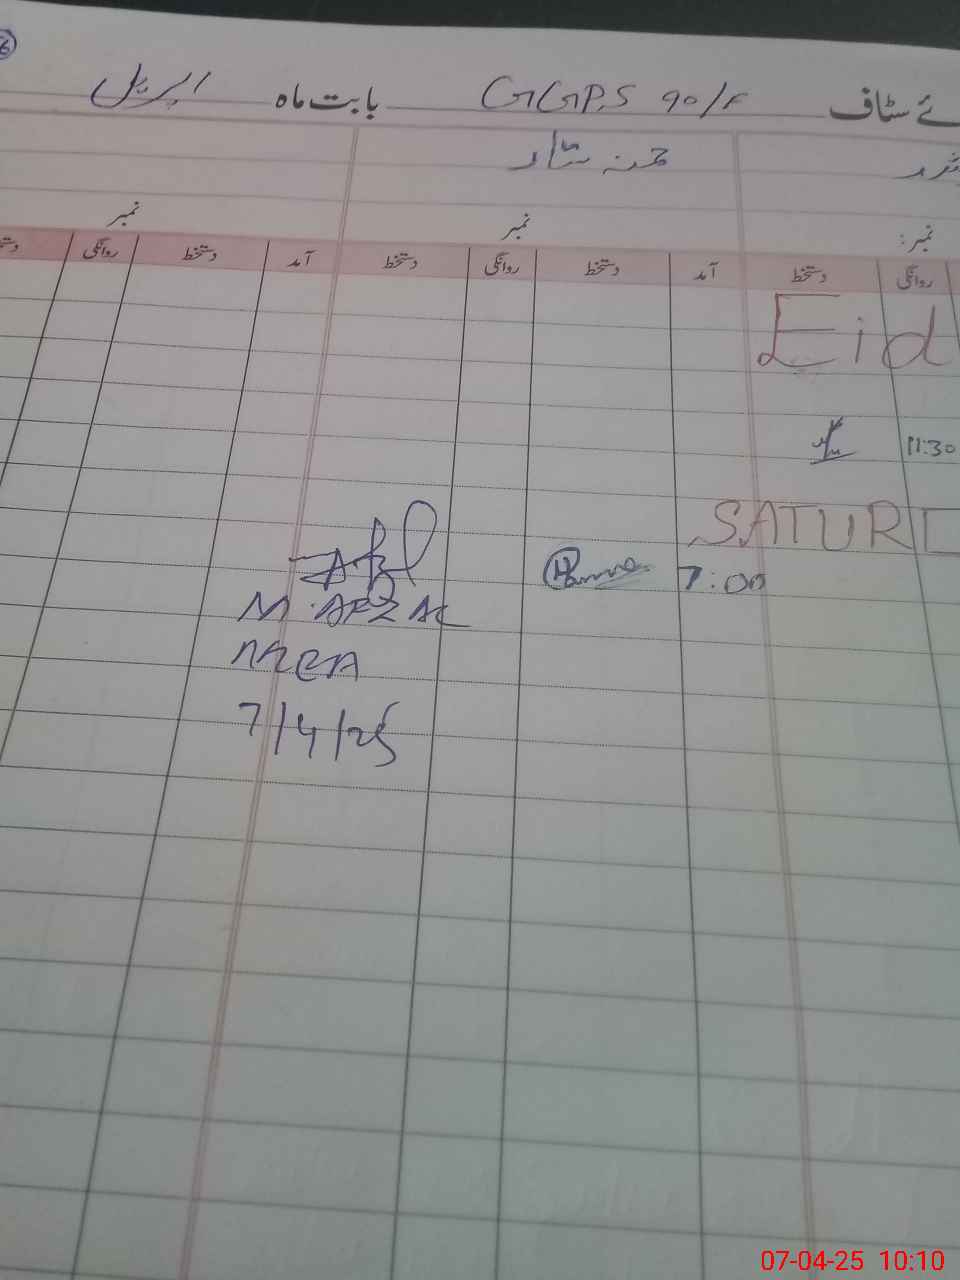 ئے سٹاف GGPS 90/F بابت ماہ اپریل
حمنہ ستار
نمبر: نمبر نمبر
روانگی دستخط آمد دستخط روانگی دستخط آمد دستخط روانگی
Eid
11:30
SATUR
7:00
M. AFZAL
MEA
7/4/25
07-04-25 10:10